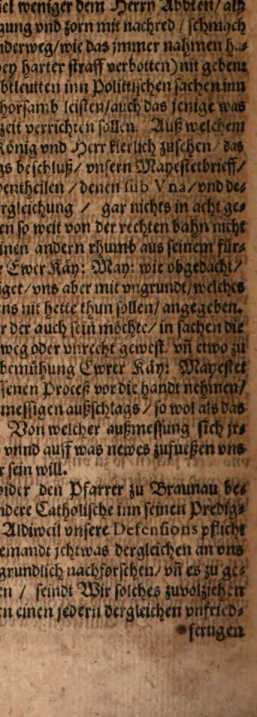 iel weniger dem Herrn Abbten / als
gung vnd zorn mit nachred / schmach
nderweg / wie das jmmer nahmen ha-
bey harter straff verbotten) nit geben:
btleutten inn Politischen sachen inn
horsamb leisten / auch das jenige was
zeit verrichten sollen. Auß welchem
König vnd Herr klerlich zusehen / das
gs beschluß / vnsern Mayestetbrieff /
entheilen / denen sub Vna / vnd de-
rgleichung / gar nichts in acht ge-
en so weit von der rechten bahn nicht
inen andern rhumb aus seinem für-
Ewer Käy: May: wie obgedacht /
iget / vns aber mit vngrundt / welches
ns nit hette thun sollen / angegeben.
r der auch sein möchte / in sachen die
weg oder vnrecht gewest. vn̄ etwo zu
bemühung Ewrer Käy: Mayestet
senen Proceß vor die handt nehmen /
messigen außschlags / so wol als das
Von welcher außmessung sich jr-
vnnd auff was newes zufueßen vns
r sein will.
wider den Pfarrer zu Braunau be-
ndere Catholische inn seinen Predig-
Aldiweil vnsere Defensions pflicht
emandt jchtwas dergleichen an vns
grundlich nachforschen / vn̄ es zu ge-
en / seindt Wir solches zuvolziehen
n einen jedern dergleichen vnfried-
fertigen